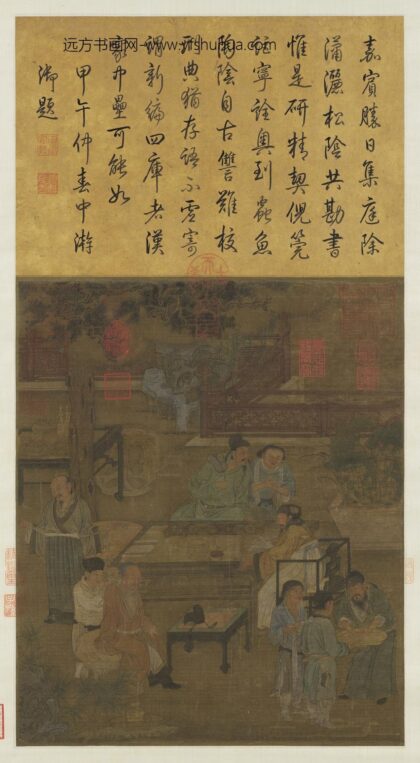 远方书画网--www.yfshuhua.com
嘉賓勝日集庭除
瀟灑松陰共勘書
惟是研精契倪筦
詎寧詮奧到蟲魚
陶陰自古讐難校
典猶存語不虛寄
謂新編四庫者漢
家中壘可能如
甲午仲春中澣
御題